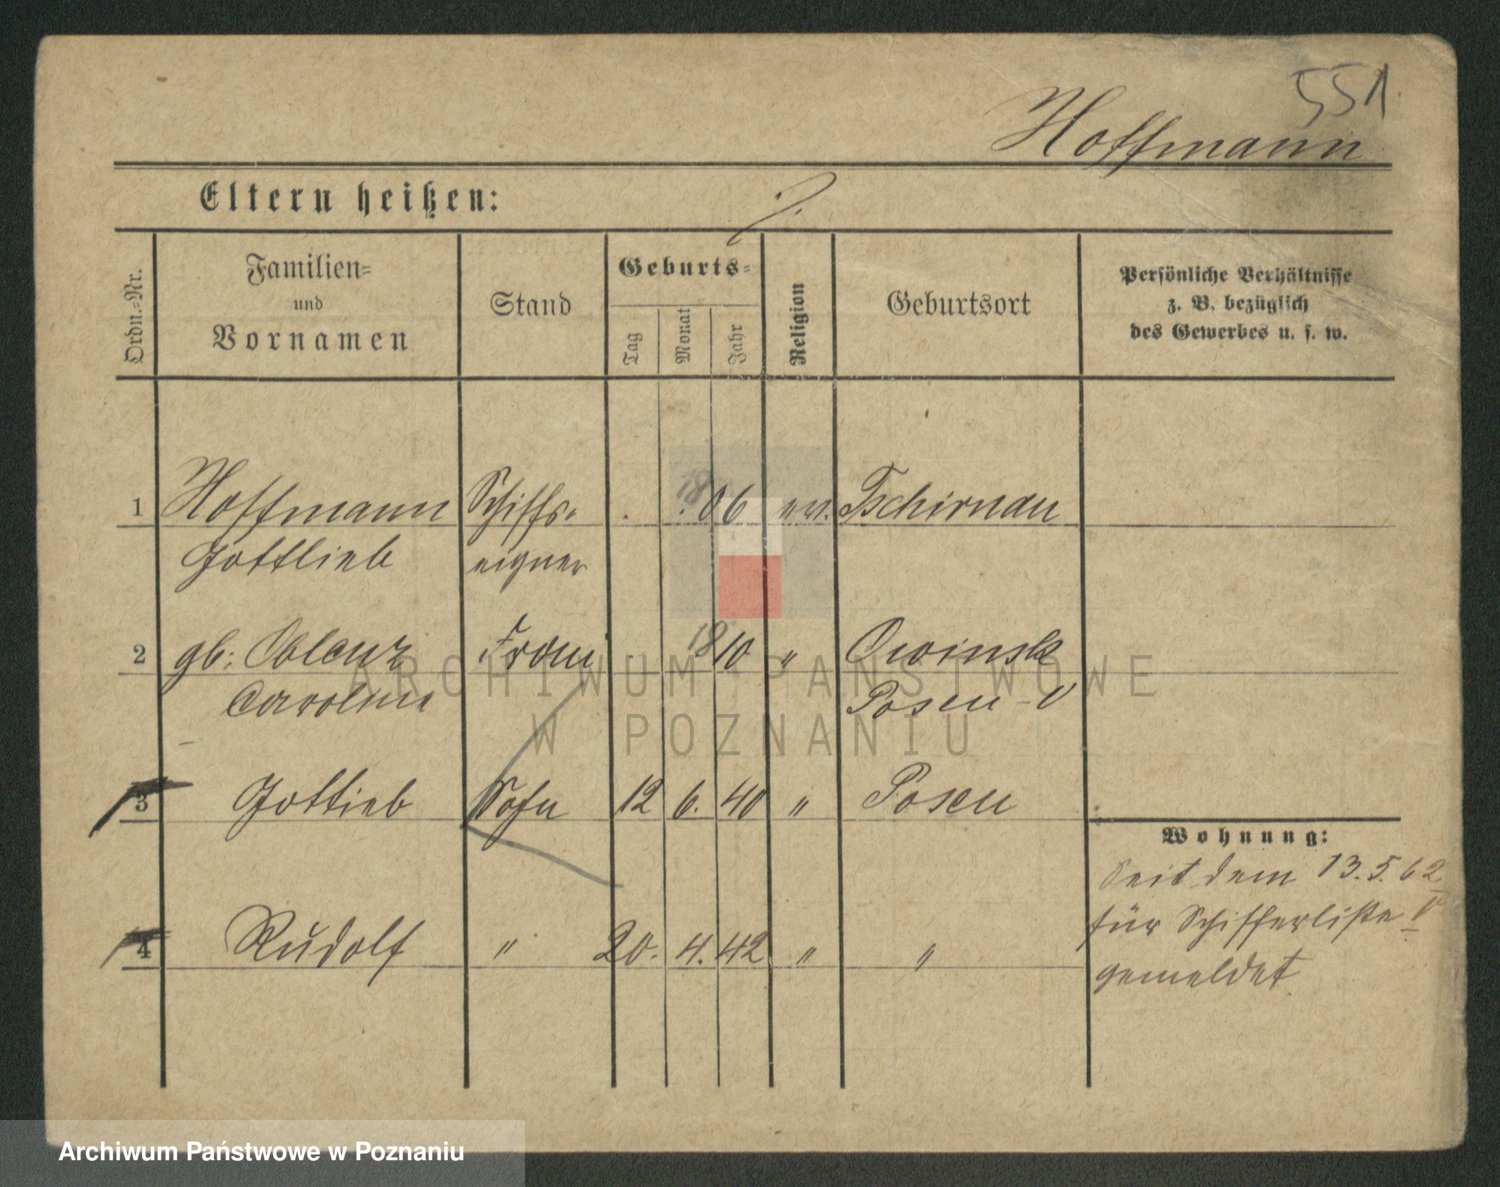 551
Hoffmann
Eltern heißen:
Ordn.=Nr.
Familien=
und
Vornamen
Stand
Geburts=
Tag
Monat
Jahr
Religion
Geburtsort
Persönliche Verhältnisse
z. B. bezüglich
des Gewerbes u. s. w.
1 Hoffmann Schiffs- 1806 ev. Tschirnau
Gottlieb eigner
2 gb: Frau 1810 " Owinsk
Caroline Posen
ARCHIWUM PAŃSTWOWE
W POZNANIU
3 Gottlieb Sohn 12 6. 40 " Posen
Wohnung:
Seit dem 13.5.62
für Schifferliste
4 Rudolf " 20. 4. 42 " "
gemeldet
Archiwum Państwowe w Poznaniu